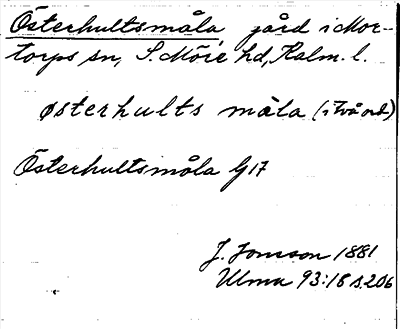 Österhultsmåla gård i Mor-
torps sn, S. Möre hd, Kalm. l.
østerhults måla (i två ord)
Österhultsmåla G17
J. Jonsson 1881
Ulma 93:18 s. 206